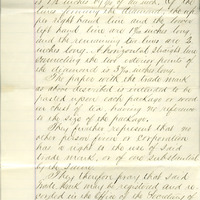 is 1 1/2 inches by 1/8 of an inch. Of the
lines forming the diamond, the upper
right hand line and the lower
left hand line are 1 3/4 inches long
and the remaining two lines are 2
inches long. A horizontal straight line
connecting the two exterior points of
the diamond is 3 1/4 inches long.
The paper with the trade mark
as above described is intended to be
pasted upon each package or wood
en chest of tea, having no reference
to the size of the package.
They further represent that no
other person firm or corporation
has a right to the use of said
trade mark, or of one substantially
the same.
They therefore pray that said
trade mark may be registered and re-
corded in the Office of the Secretary of